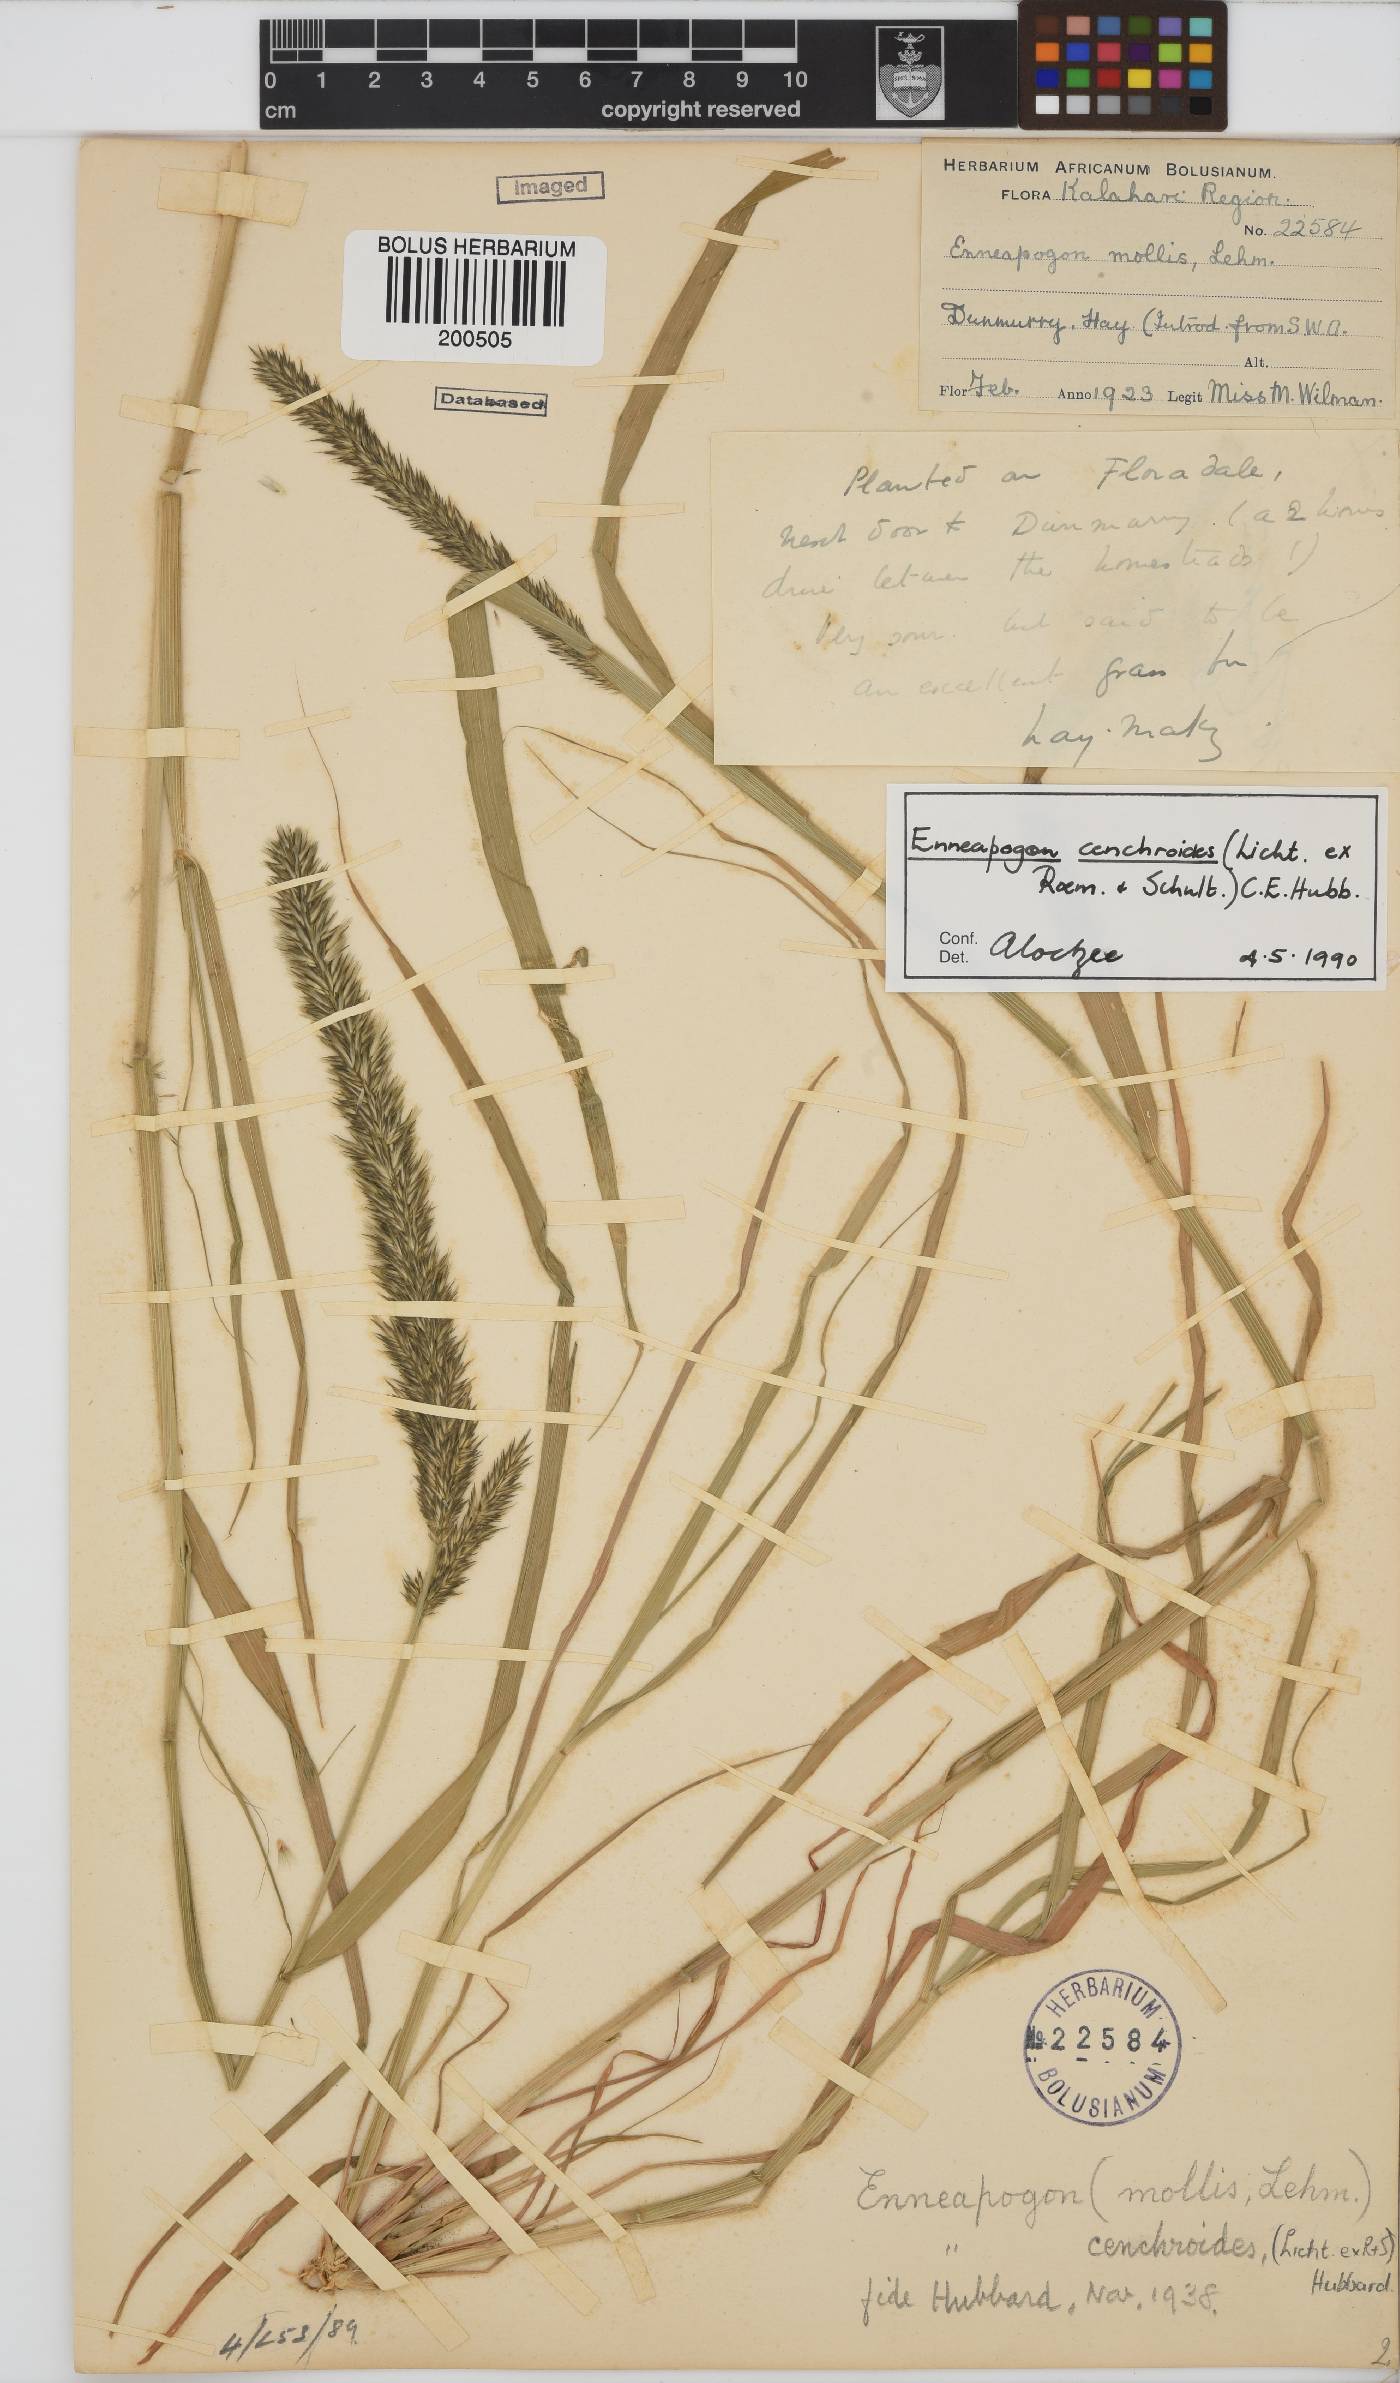 0 1 2 3 4 5 6 7 8 9 10
cm copyright reserved
Imaged
BOLUS HERBARIUM
200505
Databased
HERBARIUM AFRICANUM BOLUSIANUM.
FLORA Kalahari Region.
No. 22584
Enneapogon mollis, Lehm.
Dunmurry, Hay (Introd. from S W A.
Alt.
Flor Feb. Anno 1923 Legit Miss M. Wilman.
Planted on Floradale,
next door to Dunmurry. (a 2 hours
drive between the homesteads!)
Very sour. but said to be
an excellent grass for
hay-making.
Enneapogon cenchroides (Licht. ex
Roem. & Schult.) C.E. Hubb.
Conf.
Det.
4.5.1990
HERBARIUM
No. 22584
BOLUSIANUM
Enneapogon (mollis, Lehm.)
" cenchroides, (Licht. ex R+S)
Hubbard.
fide Hubbard, Nov. 1938.
2